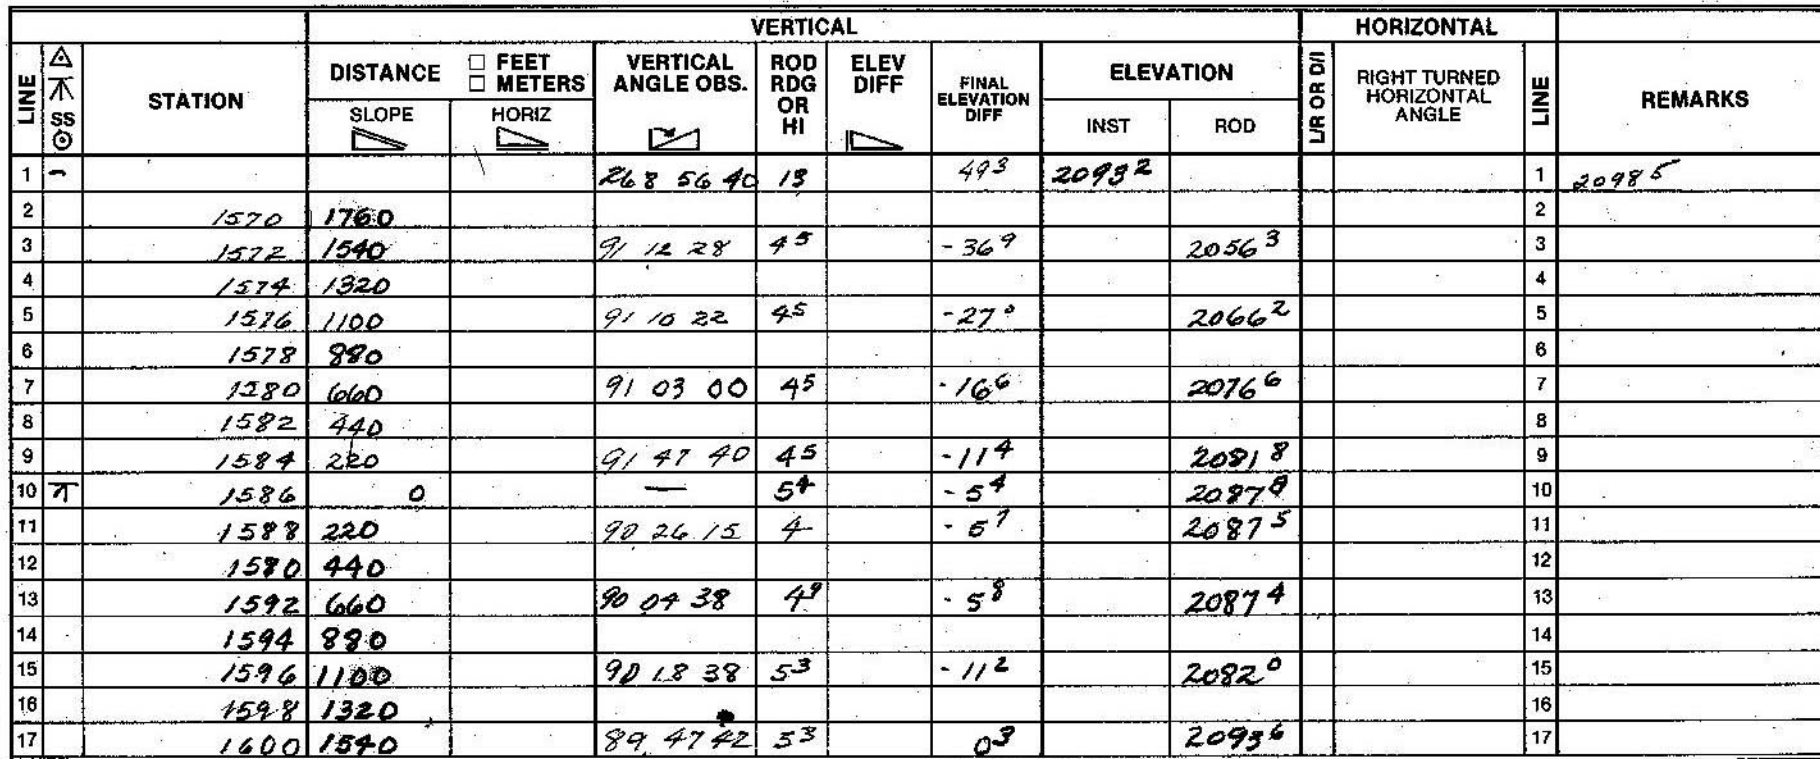 VERTICAL HORIZONTAL
LINE SS STATION DISTANCE □ FEET □ METERS SLOPE HORIZ VERTICAL ANGLE OBS. ROD RDG OR HI ELEV DIFF FINAL ELEVATION DIFF ELEVATION INST ROD L/R OR D/I RIGHT TURNED HORIZONTAL ANGLE LINE REMARKS
1 - 268 56 40 13 49 3 2093 2 1 2098 5
2 1570 1760 2
3 1572 1540 91 12 28 4 5 - 36 9 2056 3 3
4 1574 1320 4
5 1576 1100 91 10 22 4 5 - 27 0 2066 2 5
6 1578 880 6
7 1580 660 91 03 00 4 5 - 16 6 2076 6 7
8 1582 440 8
9 1584 220 91 47 40 4 5 - 11 4 2081 8 9
10 1586 0 — 5 4 - 5 4 2087 8 10
11 1588 220 90 26 15 4 - 5 7 2087 5 11
12 1580 440 12
13 1592 660 90 04 38 4 9 - 5 8 2087 4 13
14 1594 880 14
15 1596 1100 90 18 38 5 3 - 11 2 2082 0 15
16 1598 1320 16
17 1600 1540 89 47 42 5 3 0 3 2093 6 17